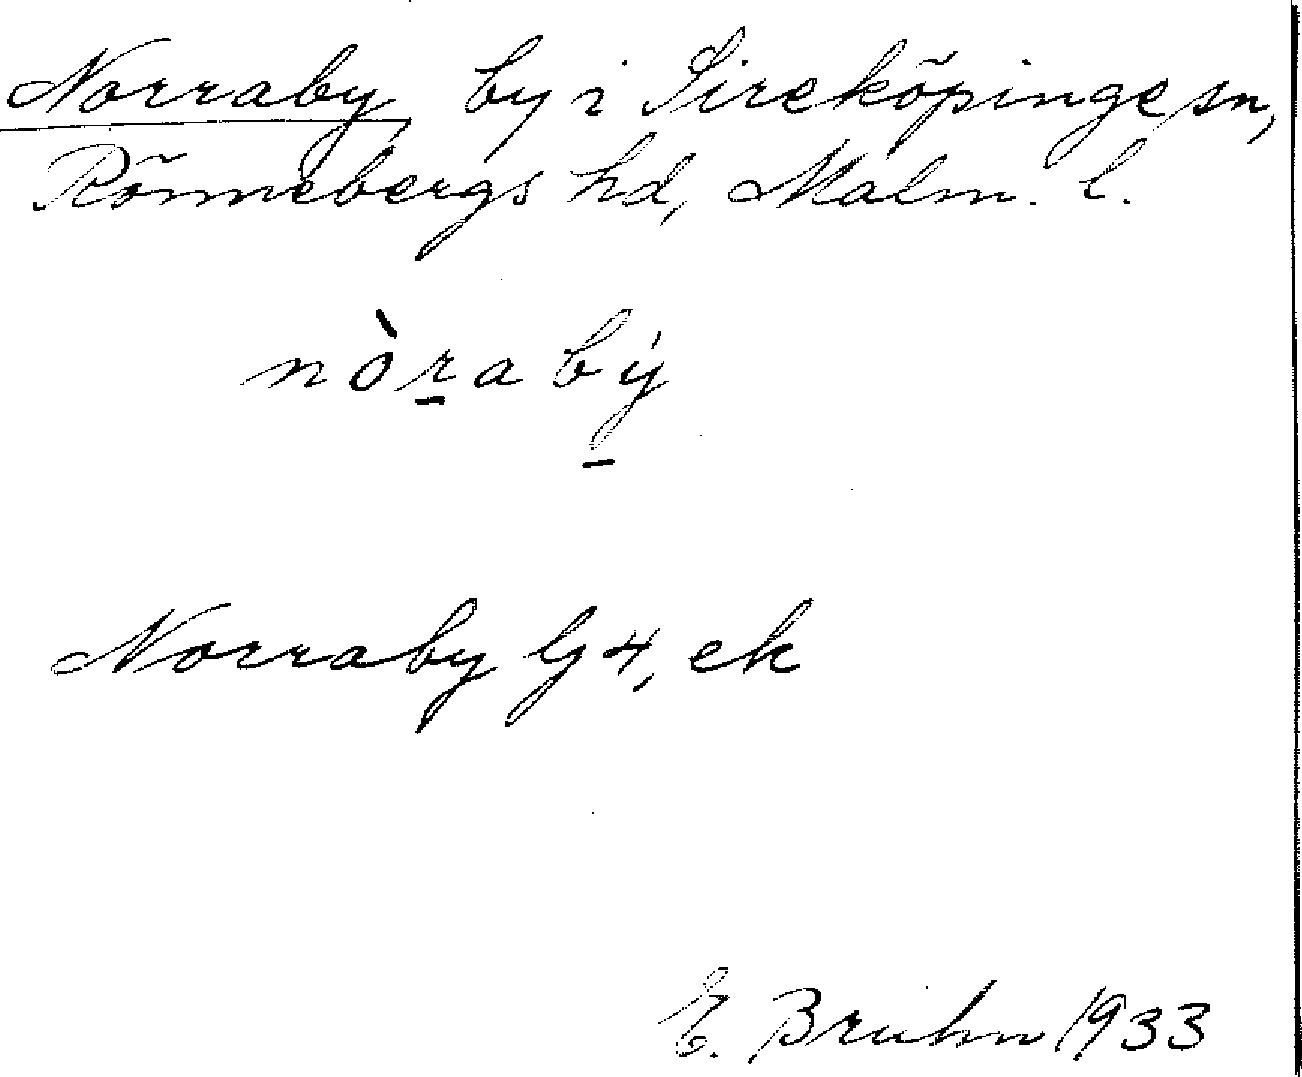 Norraby, by i Sireköpinge sn,
Rönnebergs hd, Malm. l.
nòrabý
Norraby G4, ek
E. Bruhn 1933